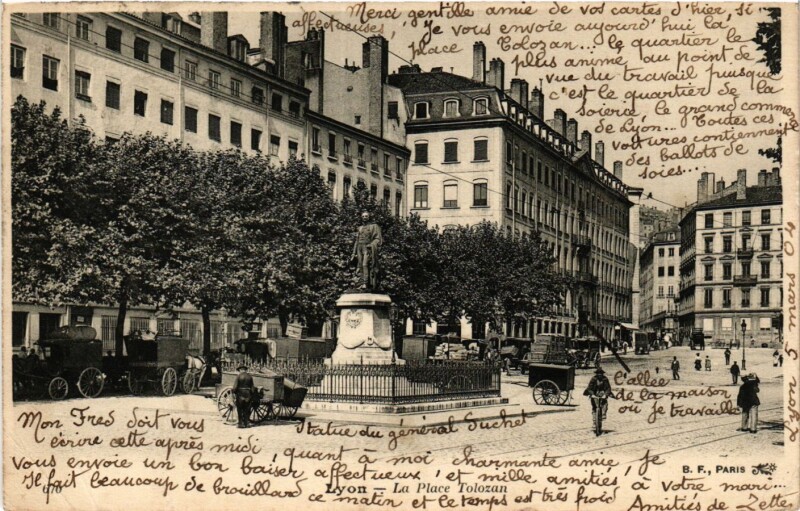 Merci gentille amie de vos cartes d'hier, si
affectueuses, je vous envoie aujourd'hui la
place Tolozan... le quartier le
plus animé, au point de
vue du travail puisque
c'est le quartier de la
soierie, le grand commerce
de Lyon... Toutes ces
voitures contiennent
des ballots de
soies...
Lyon 5 mars 04
l'allée
de la maison
où je travaille
Mon Fred doit vous
écrire cette après midi,
Statue du général Suchet
quant à moi charmante amie, je
vous envoie un bon baiser affectueux, et mille amitiés à votre mari...
Il fait beaucoup de brouillard ce matin et le temps est très froid
Amitiés de Zette
B. F., PARIS
676 Lyon — La Place Tolozan